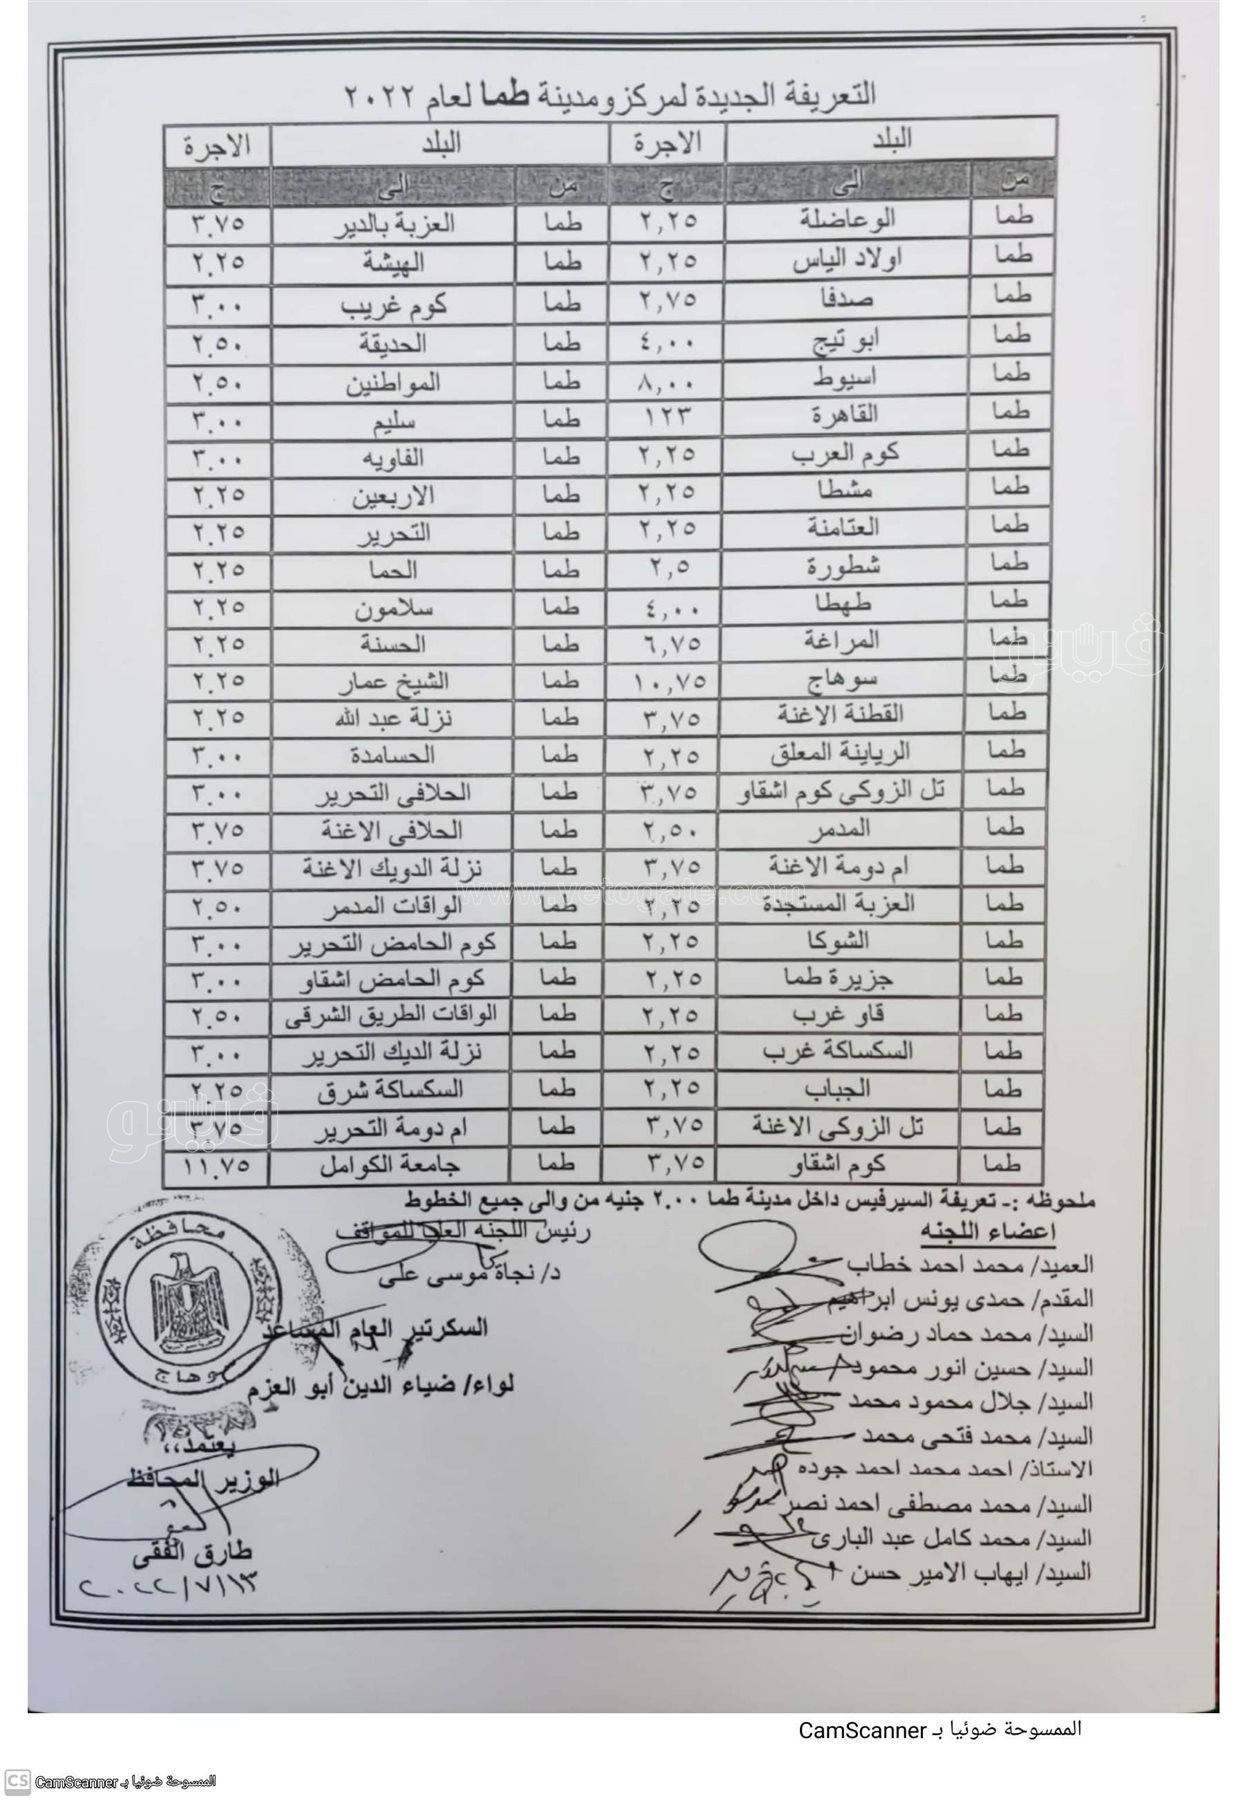 التعريفة الجديدة لمركز ومدينة طما لعام ٢٠٢٢
البلد الاجرة البلد الاجرة
من الى ج من الى ج
طما الوعاضلة ٢,٢٥ طما العزبة بالدير ٣.٧٥
طما اولاد الياس ٢,٢٥ طما الهيشة ٢.٢٥
طما صدفا ٢,٧٥ طما كوم غريب ٣.٠٠
طما ابو تيج ٤,٠٠ طما الحديقة ٢.٥٠
طما اسيوط ٨,٠٠ طما المواطنين ٢.٥٠
طما القاهرة ١٢٣ طما سليم ٣.٠٠
طما كوم العرب ٢,٢٥ طما الفاويه ٣.٠٠
طما مشطا ٢,٢٥ طما الاربعين ٢.٢٥
طما العتامنة ٢,٢٥ طما التحرير ٢.٢٥
طما شطورة ٢,٥ طما الحما ٢.٢٥
طما طهطا ٤,٠٠ طما سلامون ٢.٢٥
طما المراغة ٦,٧٥ طما الحسنة ٢.٢٥
طما سوهاج ١٠,٧٥ طما الشيخ عمار ٢.٢٥
طما القطنة الاغنة ٣,٧٥ طما نزلة عبد الله ٢.٢٥
طما الرياينة المعلق ٢,٢٥ طما الحسامدة ٣.٠٠
طما تل الزوكى كوم اشقاو ٣,٧٥ طما الحلافى التحرير ٣.٠٠
طما المدمر ٢,٥٠ طما الحلافى الاغنة ٣.٧٥
طما ام دومة الاغنة ٣,٧٥ طما نزلة الدويك الاغنة ٣.٧٥
طما العزبة المستجدة ٢,٢٥ طما الواقات المدمر ٢.٥٠
طما الشوكا ٢,٢٥ طما كوم الحامض التحرير ٣.٠٠
طما جزيرة طما ٢,٢٥ طما كوم الحامض اشقاو ٣.٠٠
طما قاو غرب ٢,٢٥ طما الواقات الطريق الشرقى ٢.٥٠
طما السكساكة غرب ٢,٢٥ طما نزلة الديك التحرير ٣.٠٠
طما الجباب ٢,٢٥ طما السكساكة شرق ٢.٢٥
طما تل الزوكى الاغنة ٣,٧٥ طما ام دومة التحرير ٣.٧٥
طما كوم اشقاو ٣,٧٥ طما جامعة الكوامل ١١.٧٥
ملحوظه :- تعريفة السيرفيس داخل مدينة طما ٢.٠٠ جنيه من والى جميع الخطوط
اعضاء اللجنه
العميد/ محمد احمد خطاب
المقدم/ حمدى يونس ابراهيم
السيد/ محمد حماد رضوان
السيد/ حسين انور محمود
السيد/ جلال محمود محمد
السيد/ محمد فتحى محمد
الاستاذ/ احمد محمد احمد جوده
السيد/ محمد مصطفى احمد نصر
السيد/ محمد كامل عبد البارى
السيد/ ايهاب الامير حسن
رئيس اللجنه العليا للمواقف
د/ نجاة موسى على
السكرتير العام المساعد
لواء/ ضياء الدين أبو العزم
محافظة
سوهاج
يعتمد،،
الوزير المحافظ
طارق الفقى
٢٠٢٢/٧/١٣
فيتو
www.vetogate.com
فيتو
الممسوحة ضوئيا بـ CamScanner
CS الممسوحة ضوئيا بـ CamScanner